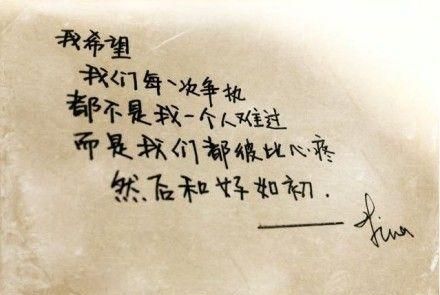 我希望
我们每一次争执
都不是我一个人难过
而是我们都彼此心疼
然后和好如初.